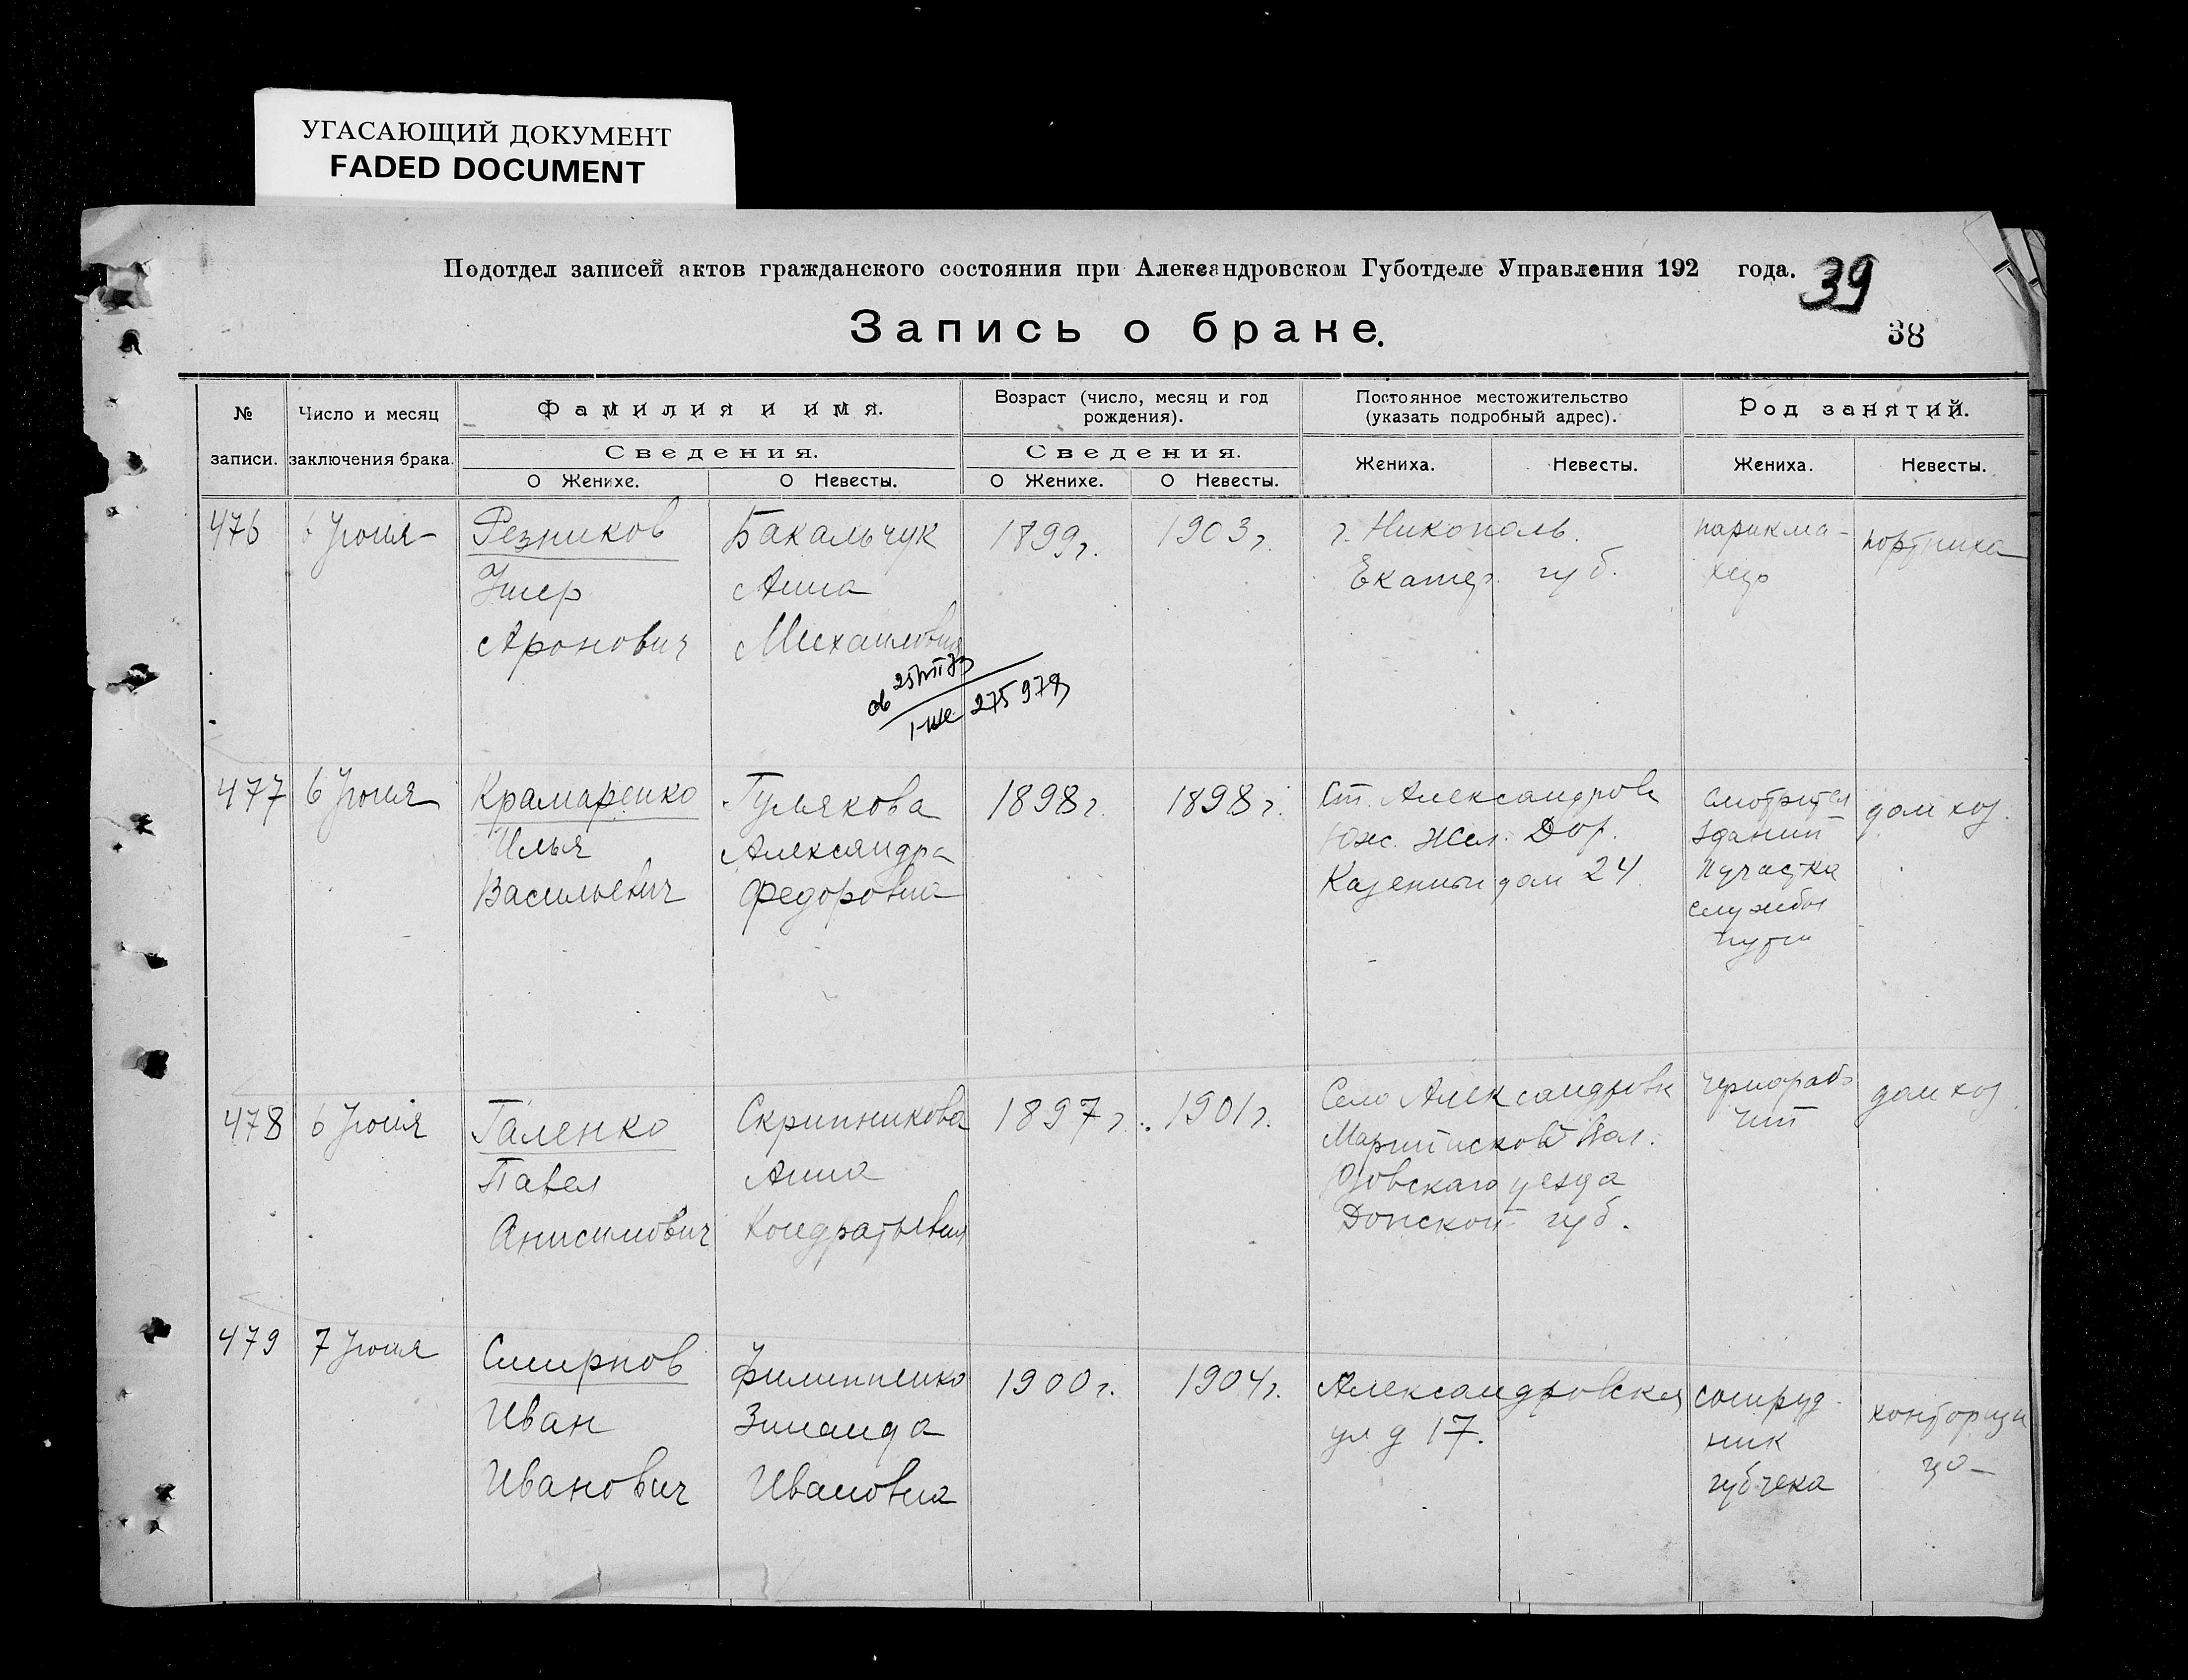 УГАСАЮЩИЙ ДОКУМЕНТ
FADED DOCUMENT
Подотдел записей актов гражданского состояния при Александровском Губотделе Управления 192 года.
39
Запись о браке.
38
№ записи.
Число и месяц заключения брака.
Фамилия и имя.
Сведения.
О Женихе.
О Невесты.
Возраст (число, месяц и год рождения).
Сведения.
О Женихе.
О Невесты.
Постоянное местожительство (указать подробный адрес).
Жениха.
Невесты.
Род занятий.
Жениха.
Невесты.
476
6 Июня
Резников
Ушер
Аронович
Бакальчук
Анна
Михайловна
1899г.
1903г.
г. Никополь.
Екатер. губ.
парикма-
хер
портниха
275979
477
6 Июня
Крамаренко
Илья
Васильевич
Гулякова
Александра
Федоровна
1898г.
1898г.
Ст. Александровск
Юж. Жел. Дор.
Казенный дом 24
смотрител
зданий
участка
службы
пути
дом хоз.
478
6 Июня
Галенко
Павел
Анисимович
Скрипникова
Анна
Кондратьевна
1897г.
1901г.
Село Александровк
вол.
уезда
Донской губ.
чернорабо
дом хоз
479
7 Июня
Смирнов
Иван
Иванович
Филиппенко
Зинаида
Ивановна
1900г.
1904г.
Александровская
ул д 17.
сотруд-
ник
губчека
конторщи
ца